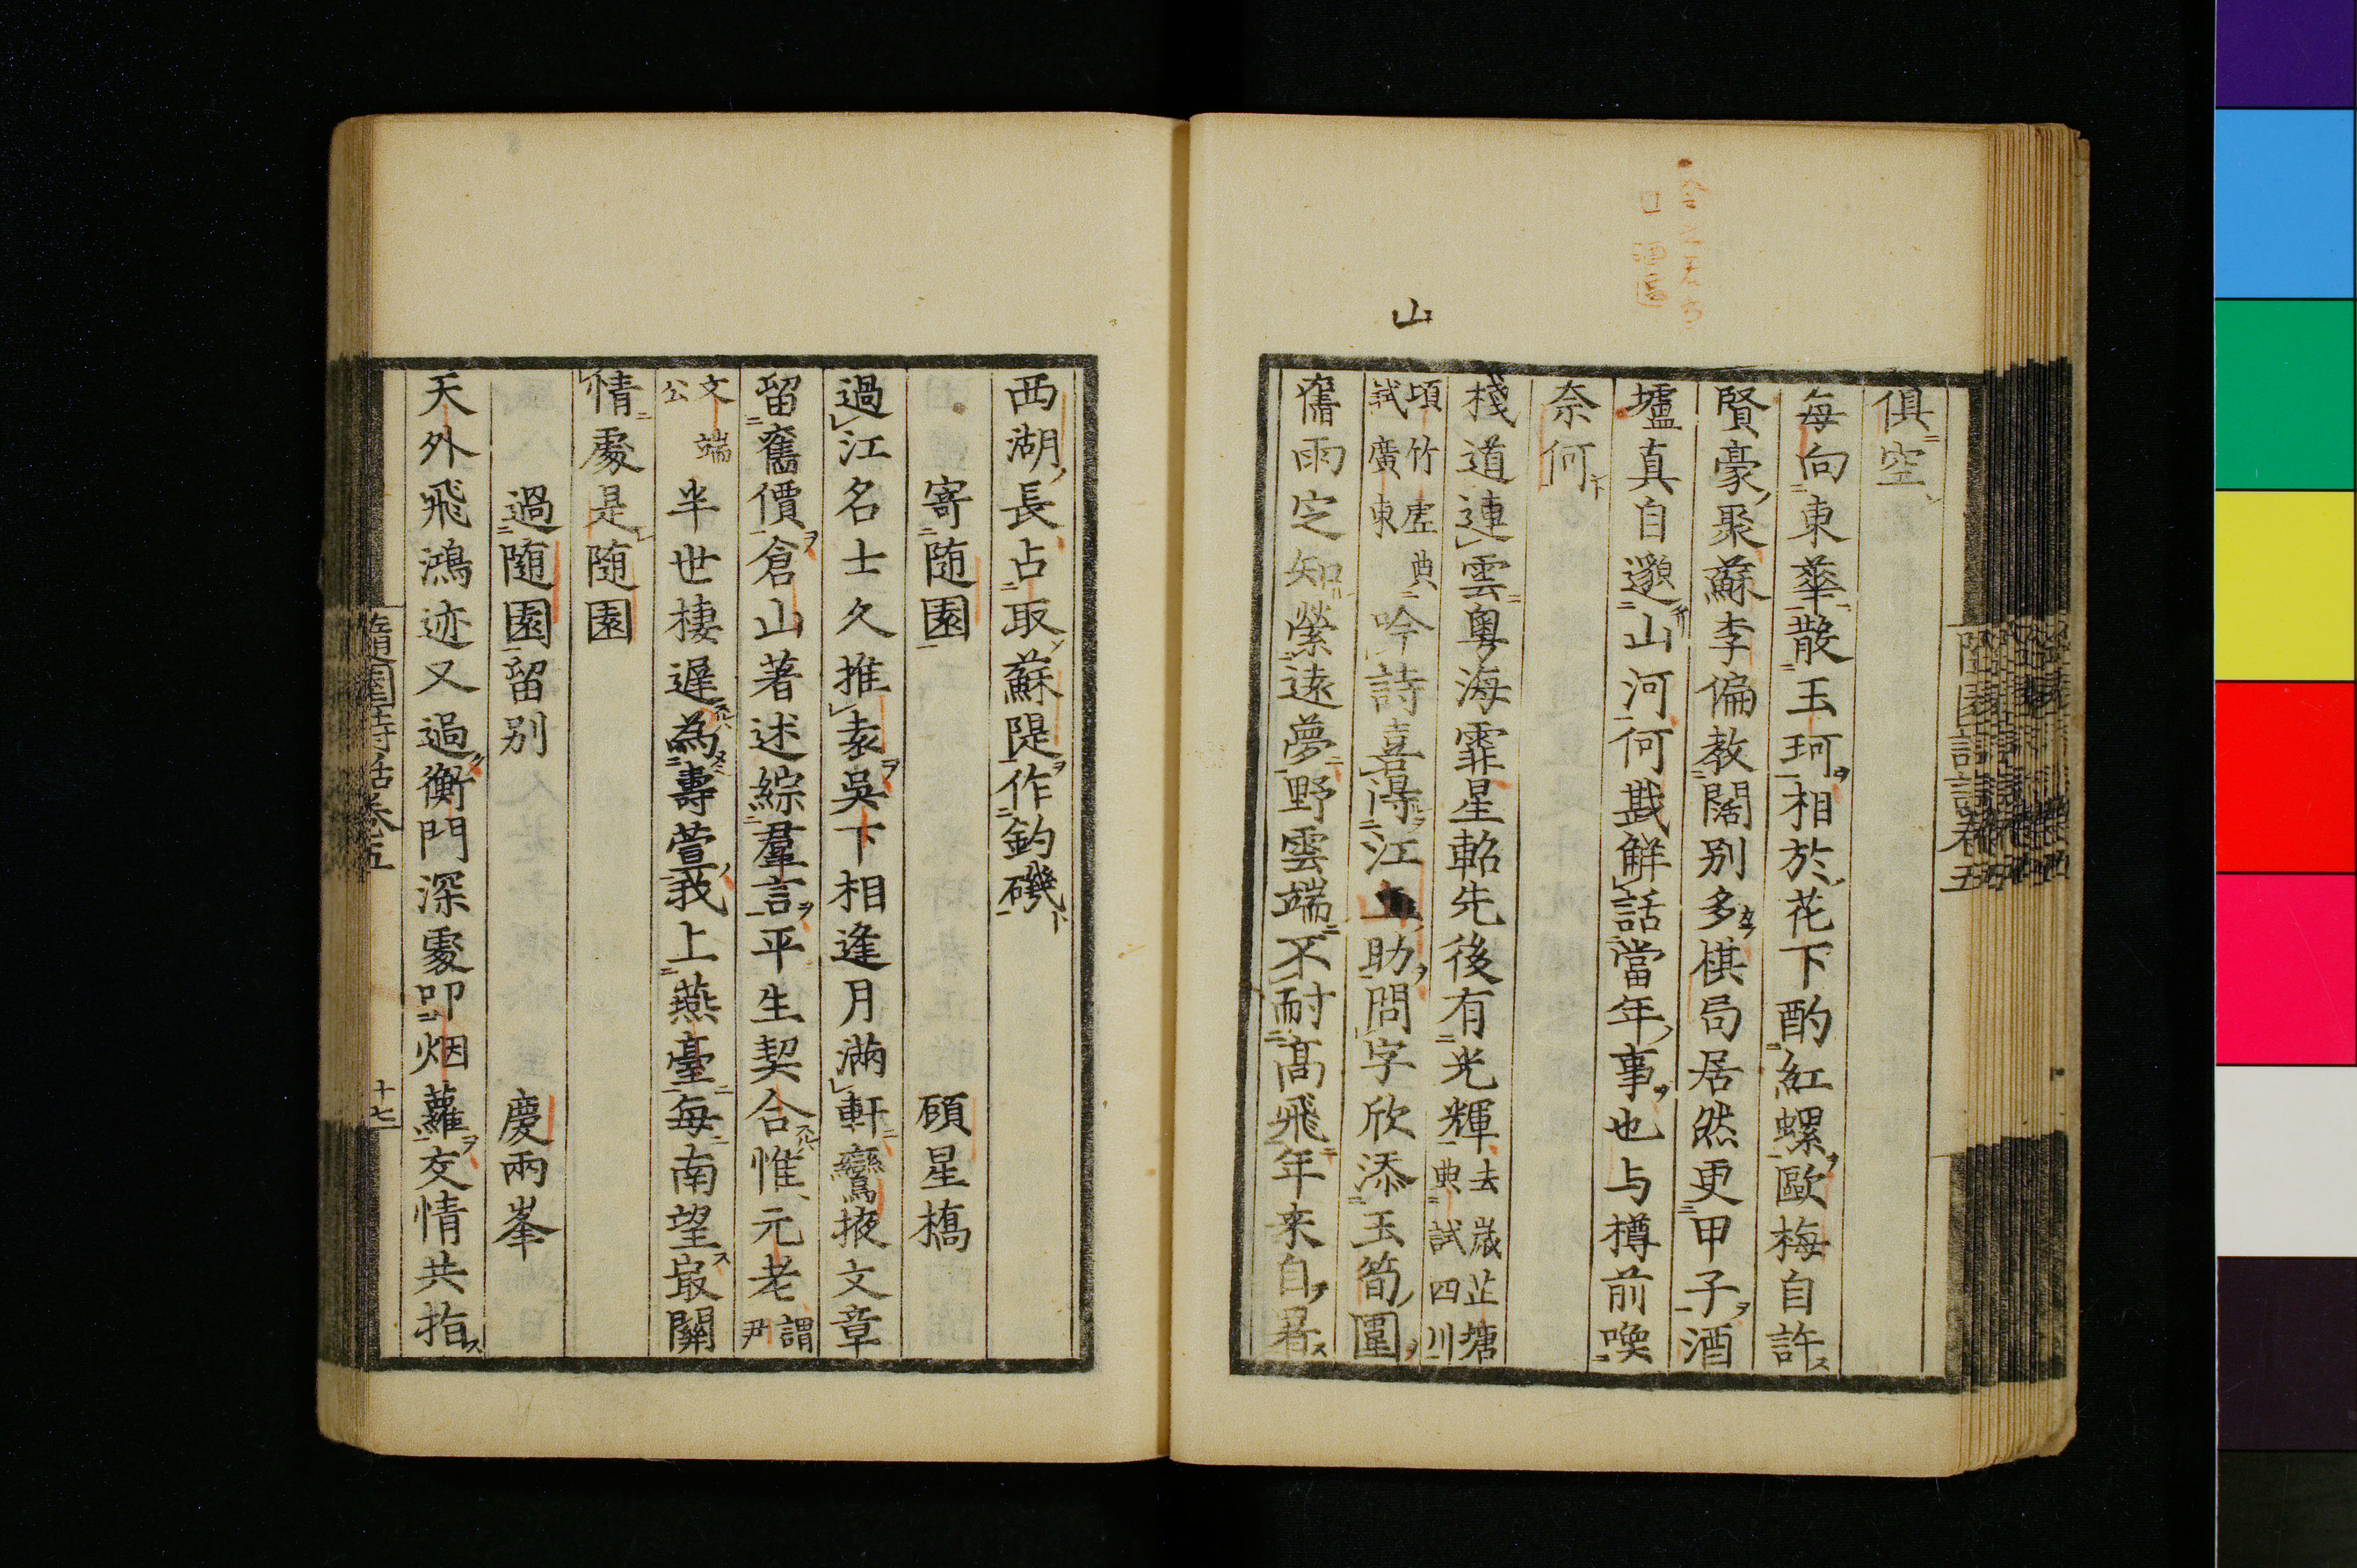 俱空
每向東華散玉珂相於花下酌紅螺歐梅自許
賢豪聚蘇李偏教闊別多棋局居然更甲子酒
壚真自邈山河何戡解話當年事也与樽前喚
奈何
棧道連雲粵海霏星軺先後有光輝去歲芷塘典試四川
頃竹虛典試廣東吟詩喜得江山助問字欣添玉筍圍
山
舊雨定知縈遠夢野雲端不耐高飛年來自署
西湖長占取蘇隄作釣磯
寄随園 顧星橋
過江名士久推袁吳下相逢月滿軒鸞掖文章
留舊價倉山著述綜羣言平生契合惟元老謂尹
文端公半世棲遲為壽萱我上燕臺每南望㝡關
情處是随園
過随園留別 慶兩峯
天外飛鴻迹又過衡門深處叩烟蘿交情共指
隨園詩話卷五 十七